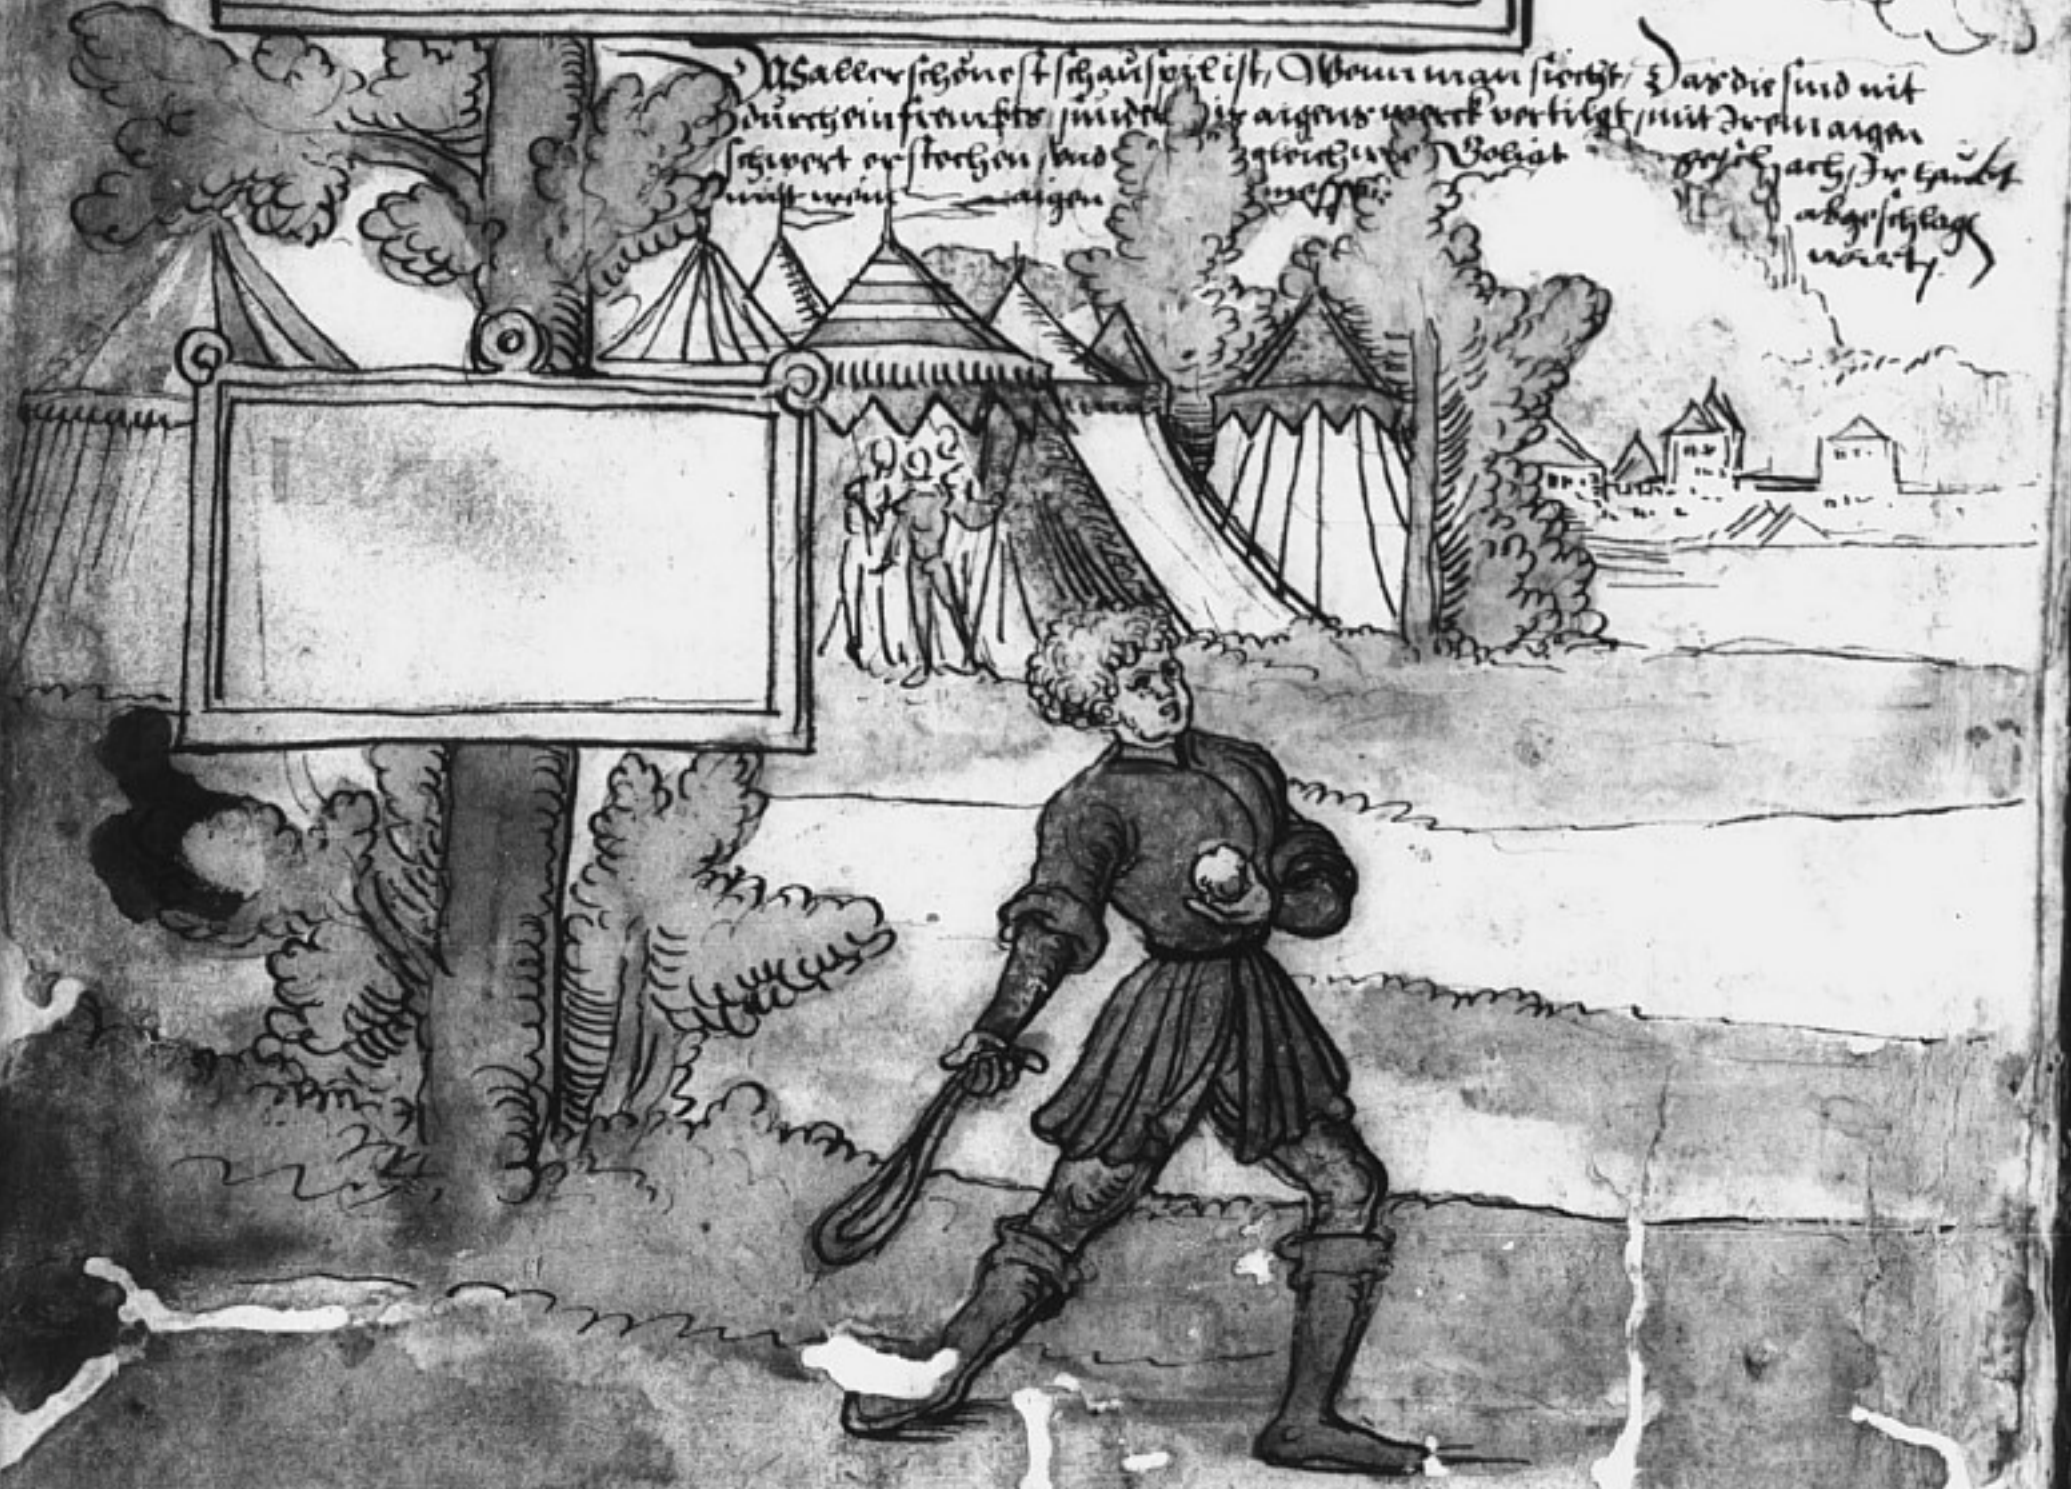 DAs aller schönest schauspil ist, Wenn man siecht, Das die sind nit
durch ein frembts sunder ir aigens werck vertilgt, mit Irem aigen
schwert erstochen, vnd gleich wie Goliat Ir haubt
mitt aigen messer abgeschlage
wirt.